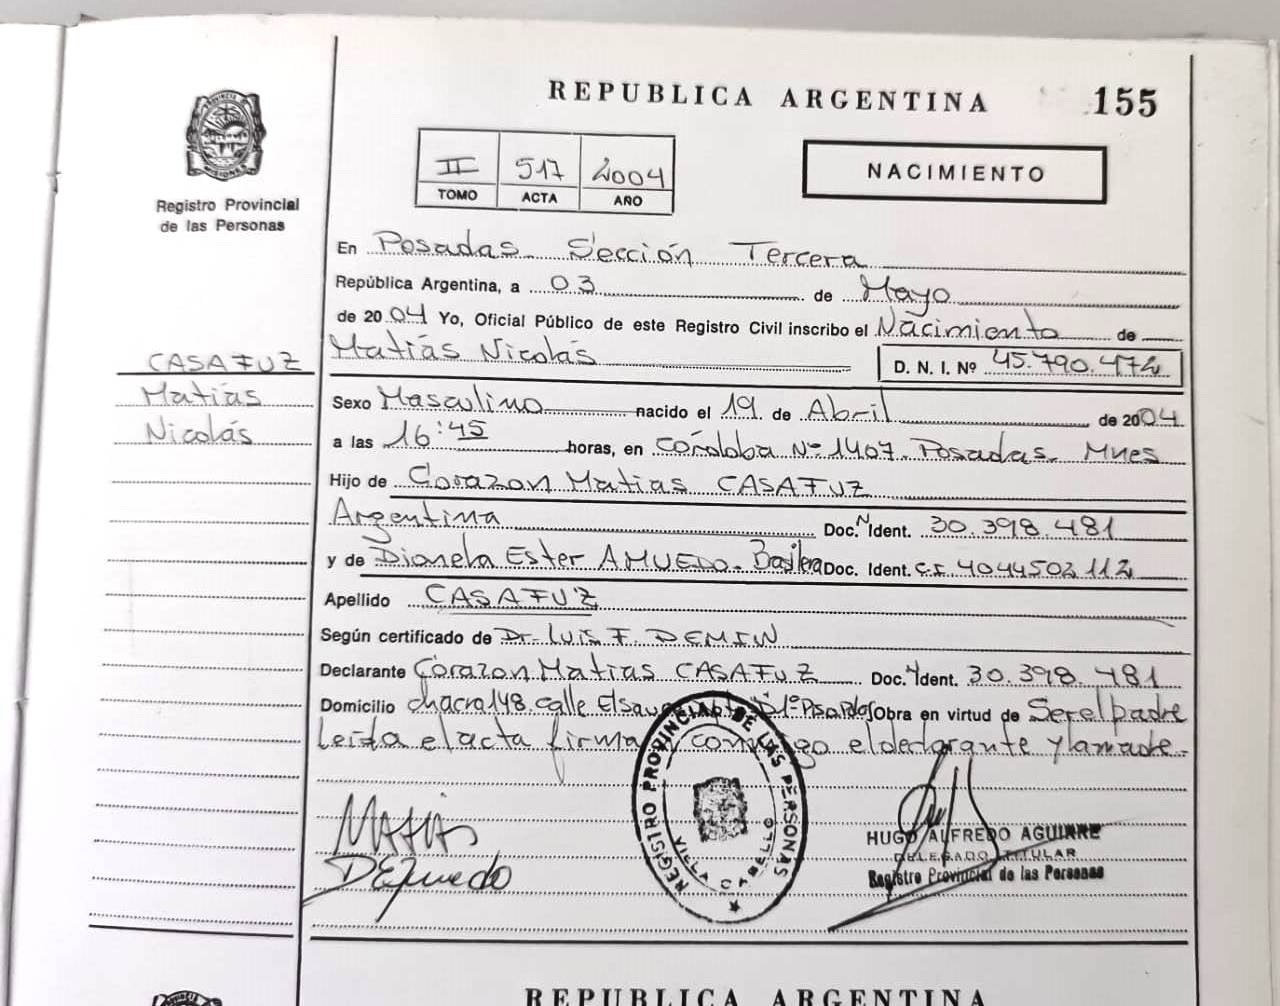 REPUBLICA ARGENTINA 155
PROVINCIA DE MISIONES
Registro Provincial
de las Personas
II 517 2004
TOMO ACTA AÑO
NACIMIENTO
En Posadas Sección Tercera
República Argentina, a 03 de Mayo
de 2004 Yo, Oficial Público de este Registro Civil inscribo el Nacimiento de
Matías Nicolás D. N. I. Nº 45.790.472
CASAFUZ
Matías
Nicolás
Sexo Masculino nacido el 19 de Abril de 2004
a las 16:45 horas, en Córdoba Nº 1407. Posadas. Mnes
Hijo de Corazon Matias CASAFUZ
Argentina Doc. N Ident. 30.398.481
y de Dionela Ester AMUEDO. Doc. Ident. C.I. 4044502112
Apellido CASAFUZ
Según certificado de Dr. Luis F. DEMIN
Declarante Corazon Matias CASAFUZ Doc. Ident. 30.398.481
Domicilio chacra 148. calle El Obra en virtud de Ser el padre
Leida el acta firma conmigo el declarante y la madre.
MATIAS
REGISTRO PROVINCIAL DE LAS PERSONAS
VILLA CABELLO
HUGO ALFREDO AGUIRRE
DELEGADO TITULAR
Registro Provincial de las Personas
REPUBLICA ARGENTINA